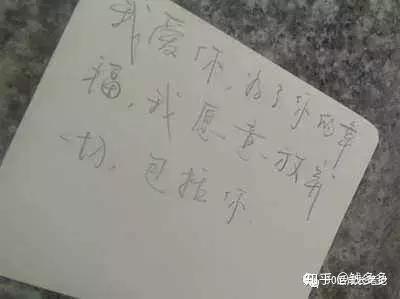 我爱你,为了你的幸
福,我愿意放弃
一切,包括你.
知乎 @钱多多